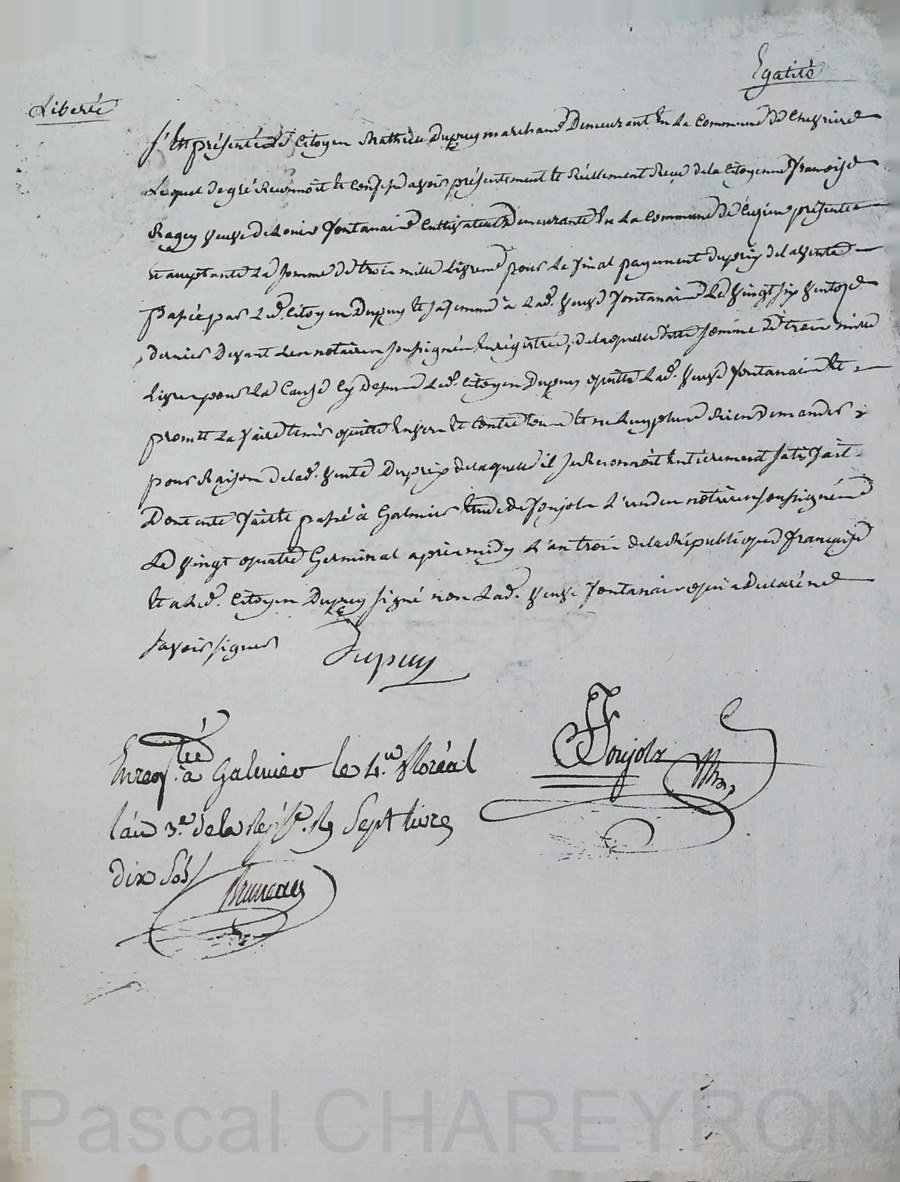 Egalité
Liberté
S'Est présenté Le Citoyen Mathieu Dupuy marchand Demeurant En La Commune De Chevrière
Lequel de gré Reconnoit et Confesse avoir présentement et Réellement Reçu de la Citoyenne françoise
Ragey veuve de Louis fontanaire Cultivateur demeurante En La Commune De présente
et acceptante La somme De trois mille Livres pour Le final payement du prix de la vente
passée par Led. Citoyen Dupuy et sa femme à Lad. veuve fontanaire Le vingt six ventose
dernier Devant Les notaires soussignés Enregistrée, de laquelle ditte somme De trois mille
Livres pour La Cause Cy dessus Led. Citoyen Dupuy quitte Lad. veuve fontanaire et
promet La faire tenir quitte Envers et Contre tous et ne Luy plus Rien Demander
pour Raison de lad. vente Du prix de laquelle il se Reconnoit Entierement satisfait
Dont acte fait et passé à Galmier Etude de Joujols L'un des notaires soussignés
Le vingt quatre Germinal après midy L'an trois de la République française
et a Led. Citoyen Dupuy signé non Lad. veuve fontanaire qui a Déclaré ne
savoir signer
Dupuy
Enregtré à Galmier le 4.e floréal
l'an 3.e de la Rép. R Sept livres
dix Sols
Joujols
Pascal CHAREYRON